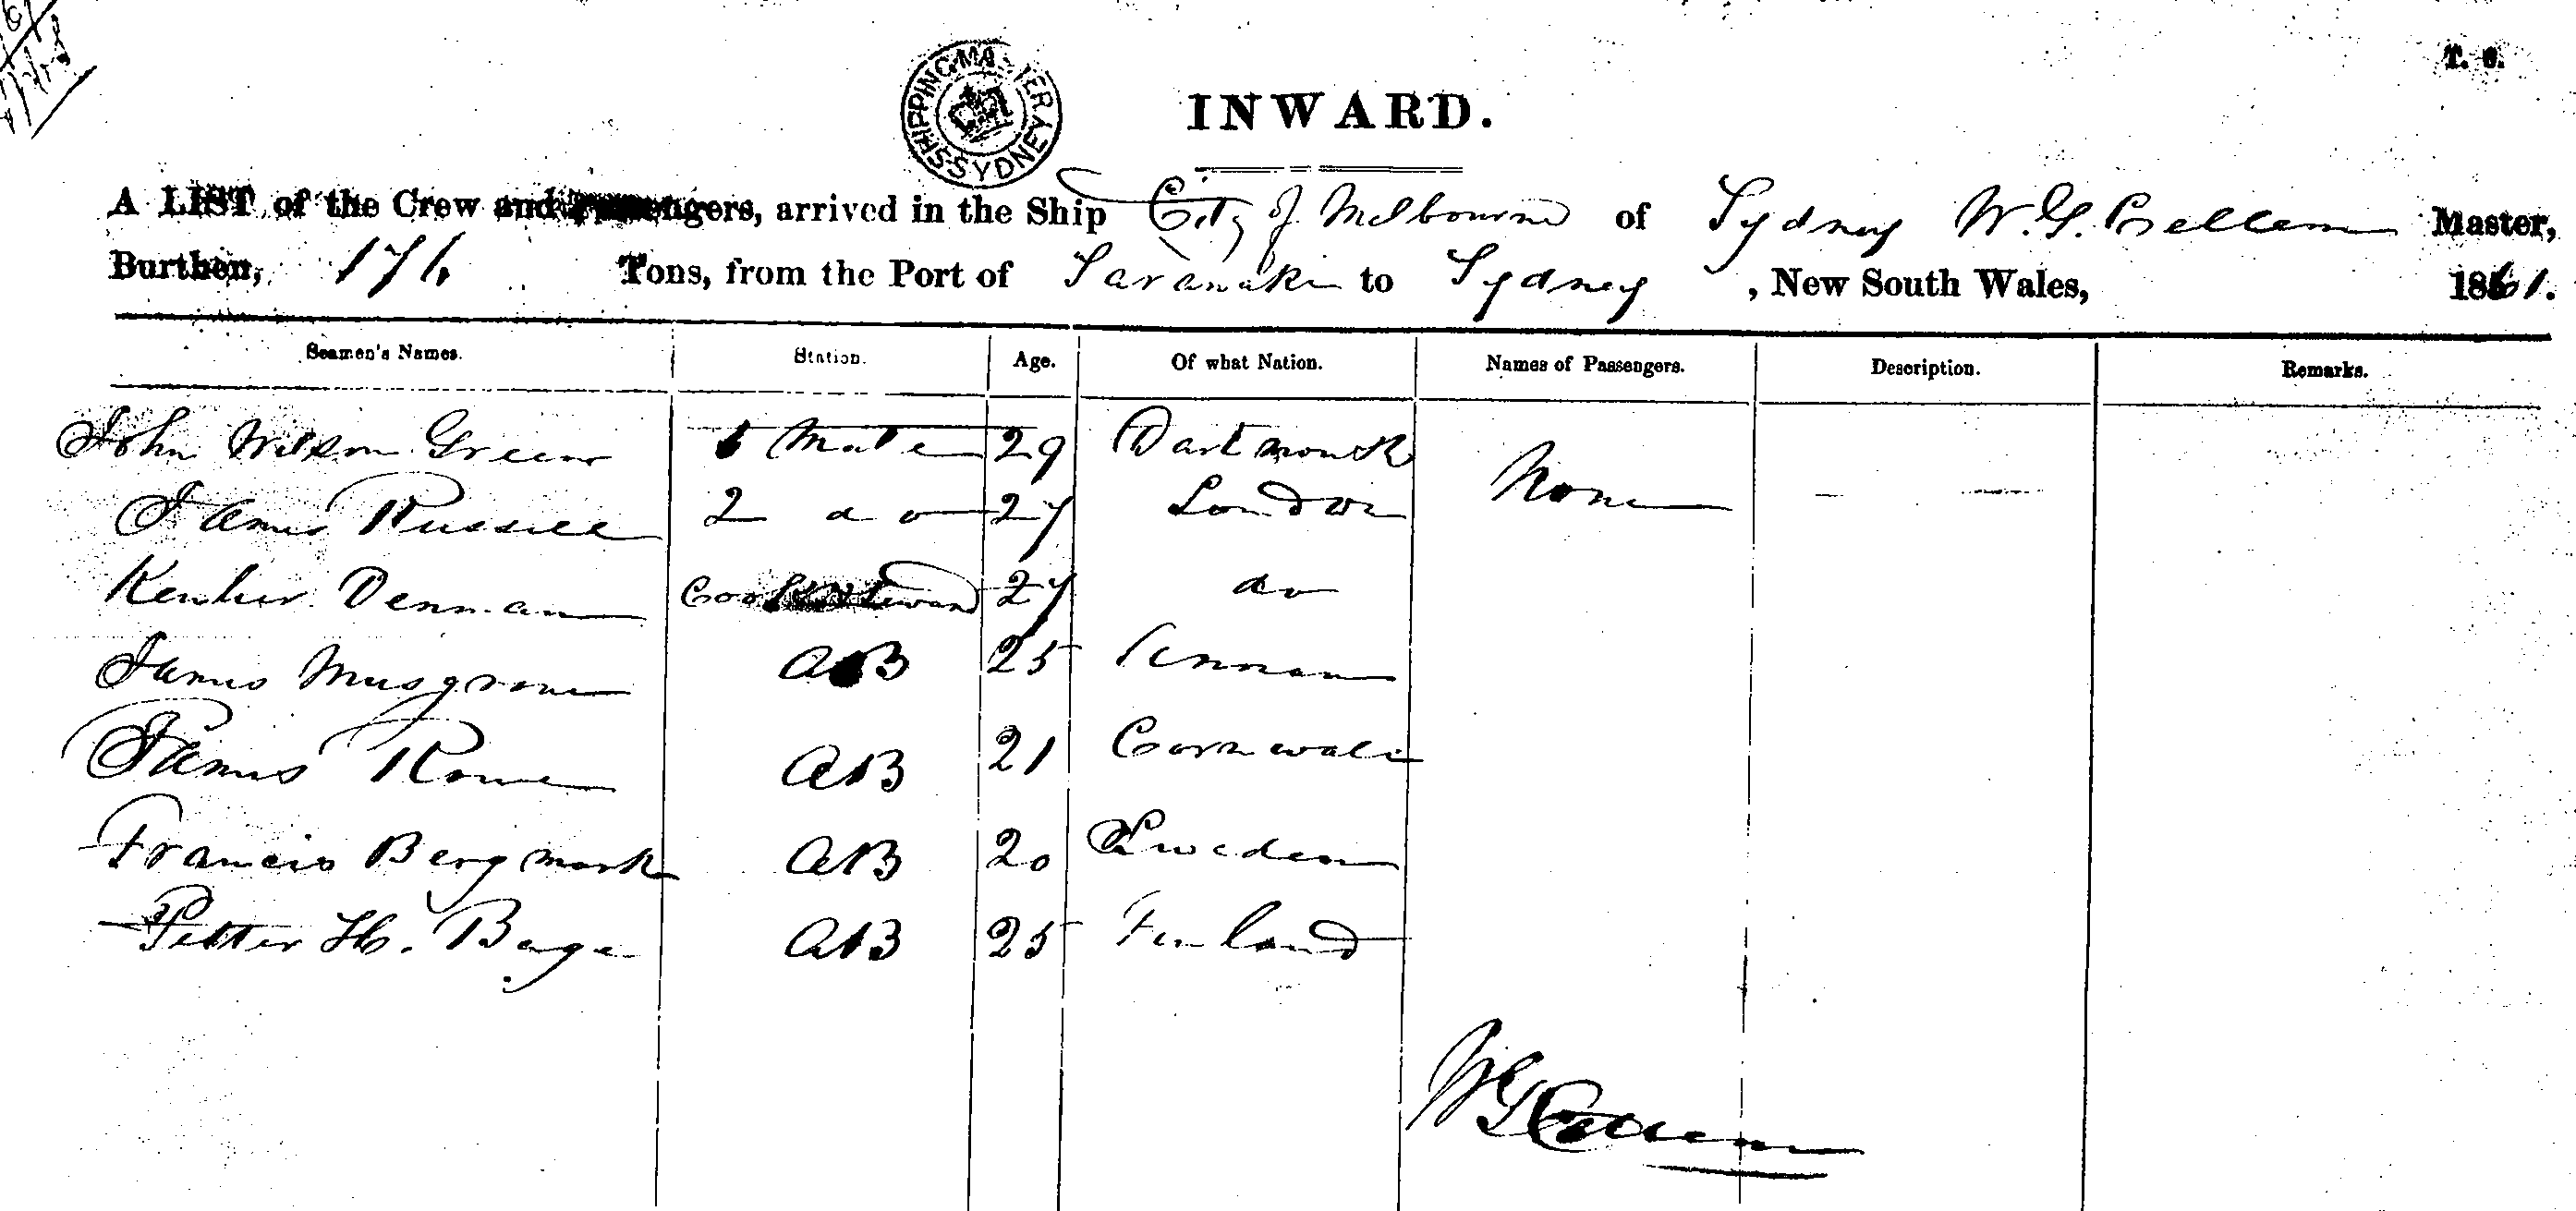 T. 6.
SHIPPING MASTER SYDNEY
INWARD.
A LIST of the Crew and Passengers, arrived in the Ship City of Melbourne of Sydney W. G. Master,
Burthen, 176 Tons, from the Port of Taranaki to Sydney, New South Wales, 1861.
Seamen's Names. Station. Age. Of what Nation. Names of Passengers. Description. Remarks.
John Wilson Green 1 Mate 29 Dartmouth None — —
James Russell 2 do 27 London
Denman Cook & Steward 27 do
James Musgrove AB 25
James Rowe AB 21 Cornwall
Francis Bergmark AB 20 Sweden
Petter H. AB 25 Finland